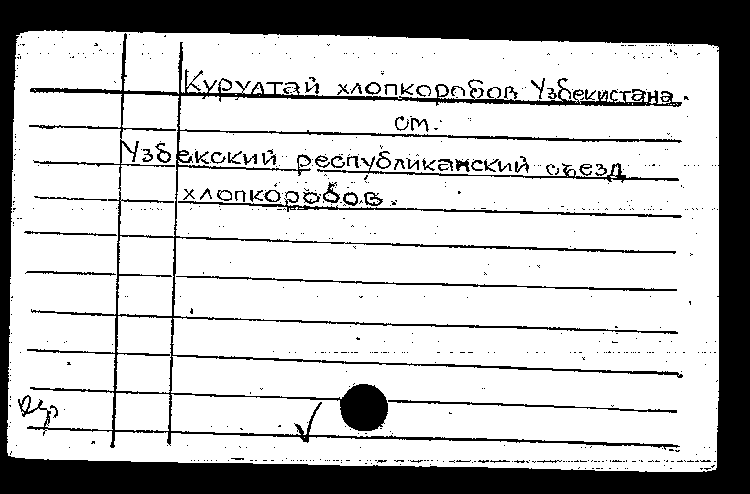 Курултай хлопкоробов Узбекистана.
см.
Узбекский республиканский съезд
хлопкоробов.